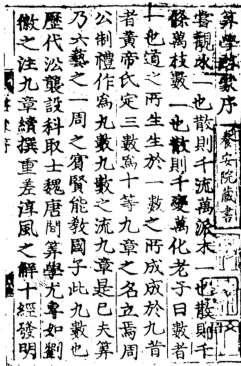 算學啓蒙序
養安院藏書
嘗觀水一也散則千流萬派木一也散則千
條萬枝數一也散則千變萬化老子曰數者
一也道之所生生於一數之所成成於九昔
者黃帝氏定三數為十等九章之名立焉周
公制禮作為九數九數之流九章是已夫算
乃六藝之一周之賓賢能教國子此九數也
歷代沿襲設科取士魏唐間算學尤專如劉
徽之注九章續撰重差淳風之解十經發明